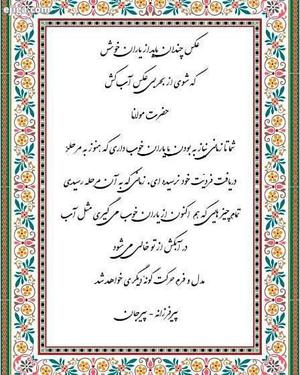 عکس چندان باید از یاران خوش
که شوی از بحر بی عکس آب کش
حضرت مولانا
شما تا زمانی نیاز به بودن با یاران خوب داری که هنوز به مرحله
دریافت فردیت خود نرسیده ای، زمانی که به آن مرحله رسیدی
تمام چیز هایی که هم اکنون از یاران خوب می گیری مثل آب
در آبکش از تو خالی می شود
مدل و فرم حرکت گونه دیگری خواهد شد
پیر فرزانه - پیرجان